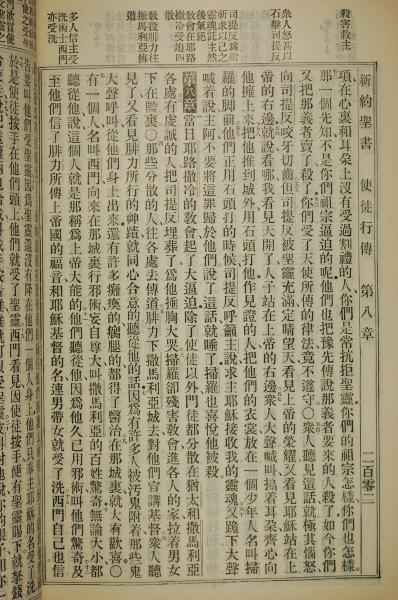 新約聖書 使徒行傳 第八章 二百零二
殺害救主
衆人怒甚以
石擊司提反
司提反爲敵
祈求以己之
靈魂託主然
後氣絕
敎會在耶路
撒冷受迫四
散
腓力往
撒馬利亞傳
道
多人信主受
洗術士西門
亦受洗
項在心裏和耳朵上沒有受過割禮的人你們是常抗拒聖靈你們的祖宗怎樣你們也怎樣
那一個先知不是你們祖宗逼迫的呢他們也把豫先傳說那義者要來的人殺了如今你們
又把那義者賣了殺了你們受了天使所傳的律法竟不遵守○衆人聽見這話就極其惱怒
向司提反咬牙切齒但司提反被聖靈充滿定睛望天看見上帝的榮耀又看見耶穌站在上
帝的右邊就說看哪我看見天開了人子站在上帝的右邊衆人大聲喊叫搗着耳朵齊心向
他擁上來把他推到城外用石頭打他作見證的人把他們的衣裳放在一個少年人名叫掃
羅的脚前他們正用石頭打的時候司提反呼籲主說求主耶穌接收我的靈魂又跪下大聲
喊着說主阿不要將這罪歸於他們說了這話就睡了掃羅也喜悅他被殺
第八章當日耶路撒冷的敎會起了大逼迫除了使徒以外門徒都分散在猶太和撒馬利亞
各處有虔誠的人把司提反埋葬了爲他捶胸大哭掃羅卻殘害敎會進各人的家拉着男女
下在監裏○那些分散的人往各處去傳道腓力下撒馬利亞城去對他們宣講基督衆人聽
見了又看見腓力所行的神蹟就同心合意的聽從他的話因爲有許多人被汚鬼附着那些鬼
大聲呼叫從他們身上出來還有許多癱瘓的瘸腿的都得了醫治在那城裏就大有歡喜○
有一個人名叫西門向來在那城裏行邪術妄自尊大叫撒馬利亞的百姓驚奇無論大小都
聽從他說這個人就是那稱爲上帝大能的他們聽從他因爲他久已用邪術叫他們驚奇及
至他們信了腓力所傳上帝國的福音和耶穌基督的名連男帶女就受了洗西門自己也信
於是使徒按手在他們頭上他們就受了聖靈西門看見因使徒按手便有聖靈賜下就拿錢